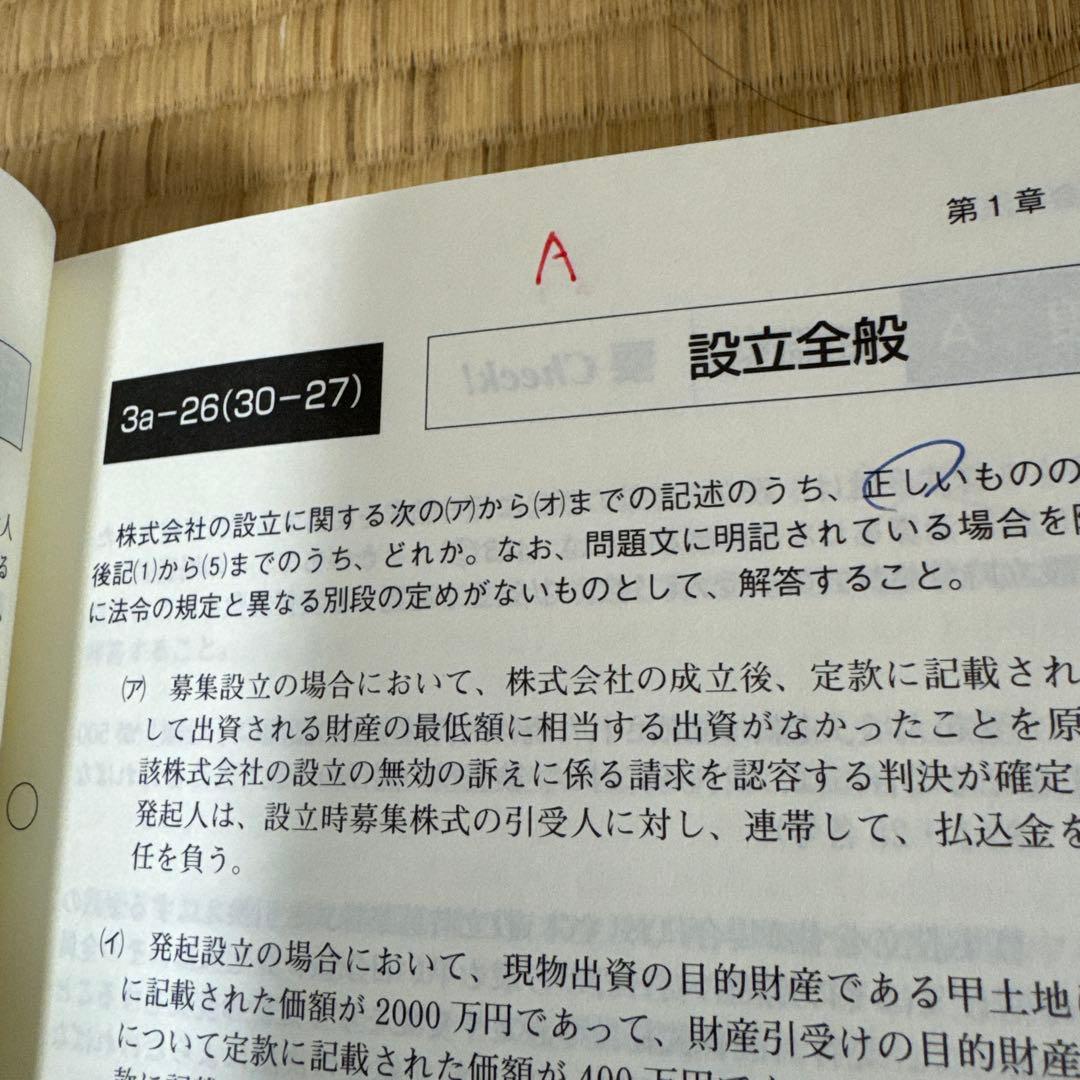 第1章
A
3a-26(30-27)
設立全般
株式会社の設立に関する次の(ア)から(オ)までの記述のうち、正しいものの
後記(1)から(5)までのうち、どれか。なお、問題文に明記されている場合を
に法令の規定と異なる別段の定めがないものとして、解答すること。
(ア) 募集設立の場合において、株式会社の成立後、定款に記載され
して出資される財産の最低額に相当する出資がなかったことを原
該株式会社の設立の無効の訴えに係る請求を認容する判決が確定
発起人は、設立時募集株式の引受人に対し、連帯して、払込金を
任を負う。
(イ) 発起設立の場合において、現物出資の目的財産である甲土地
に記載された価額が 2000 万円であって、財産引受けの目的財産
について定款に記載された価額が 400 万円で
人
る
Check!